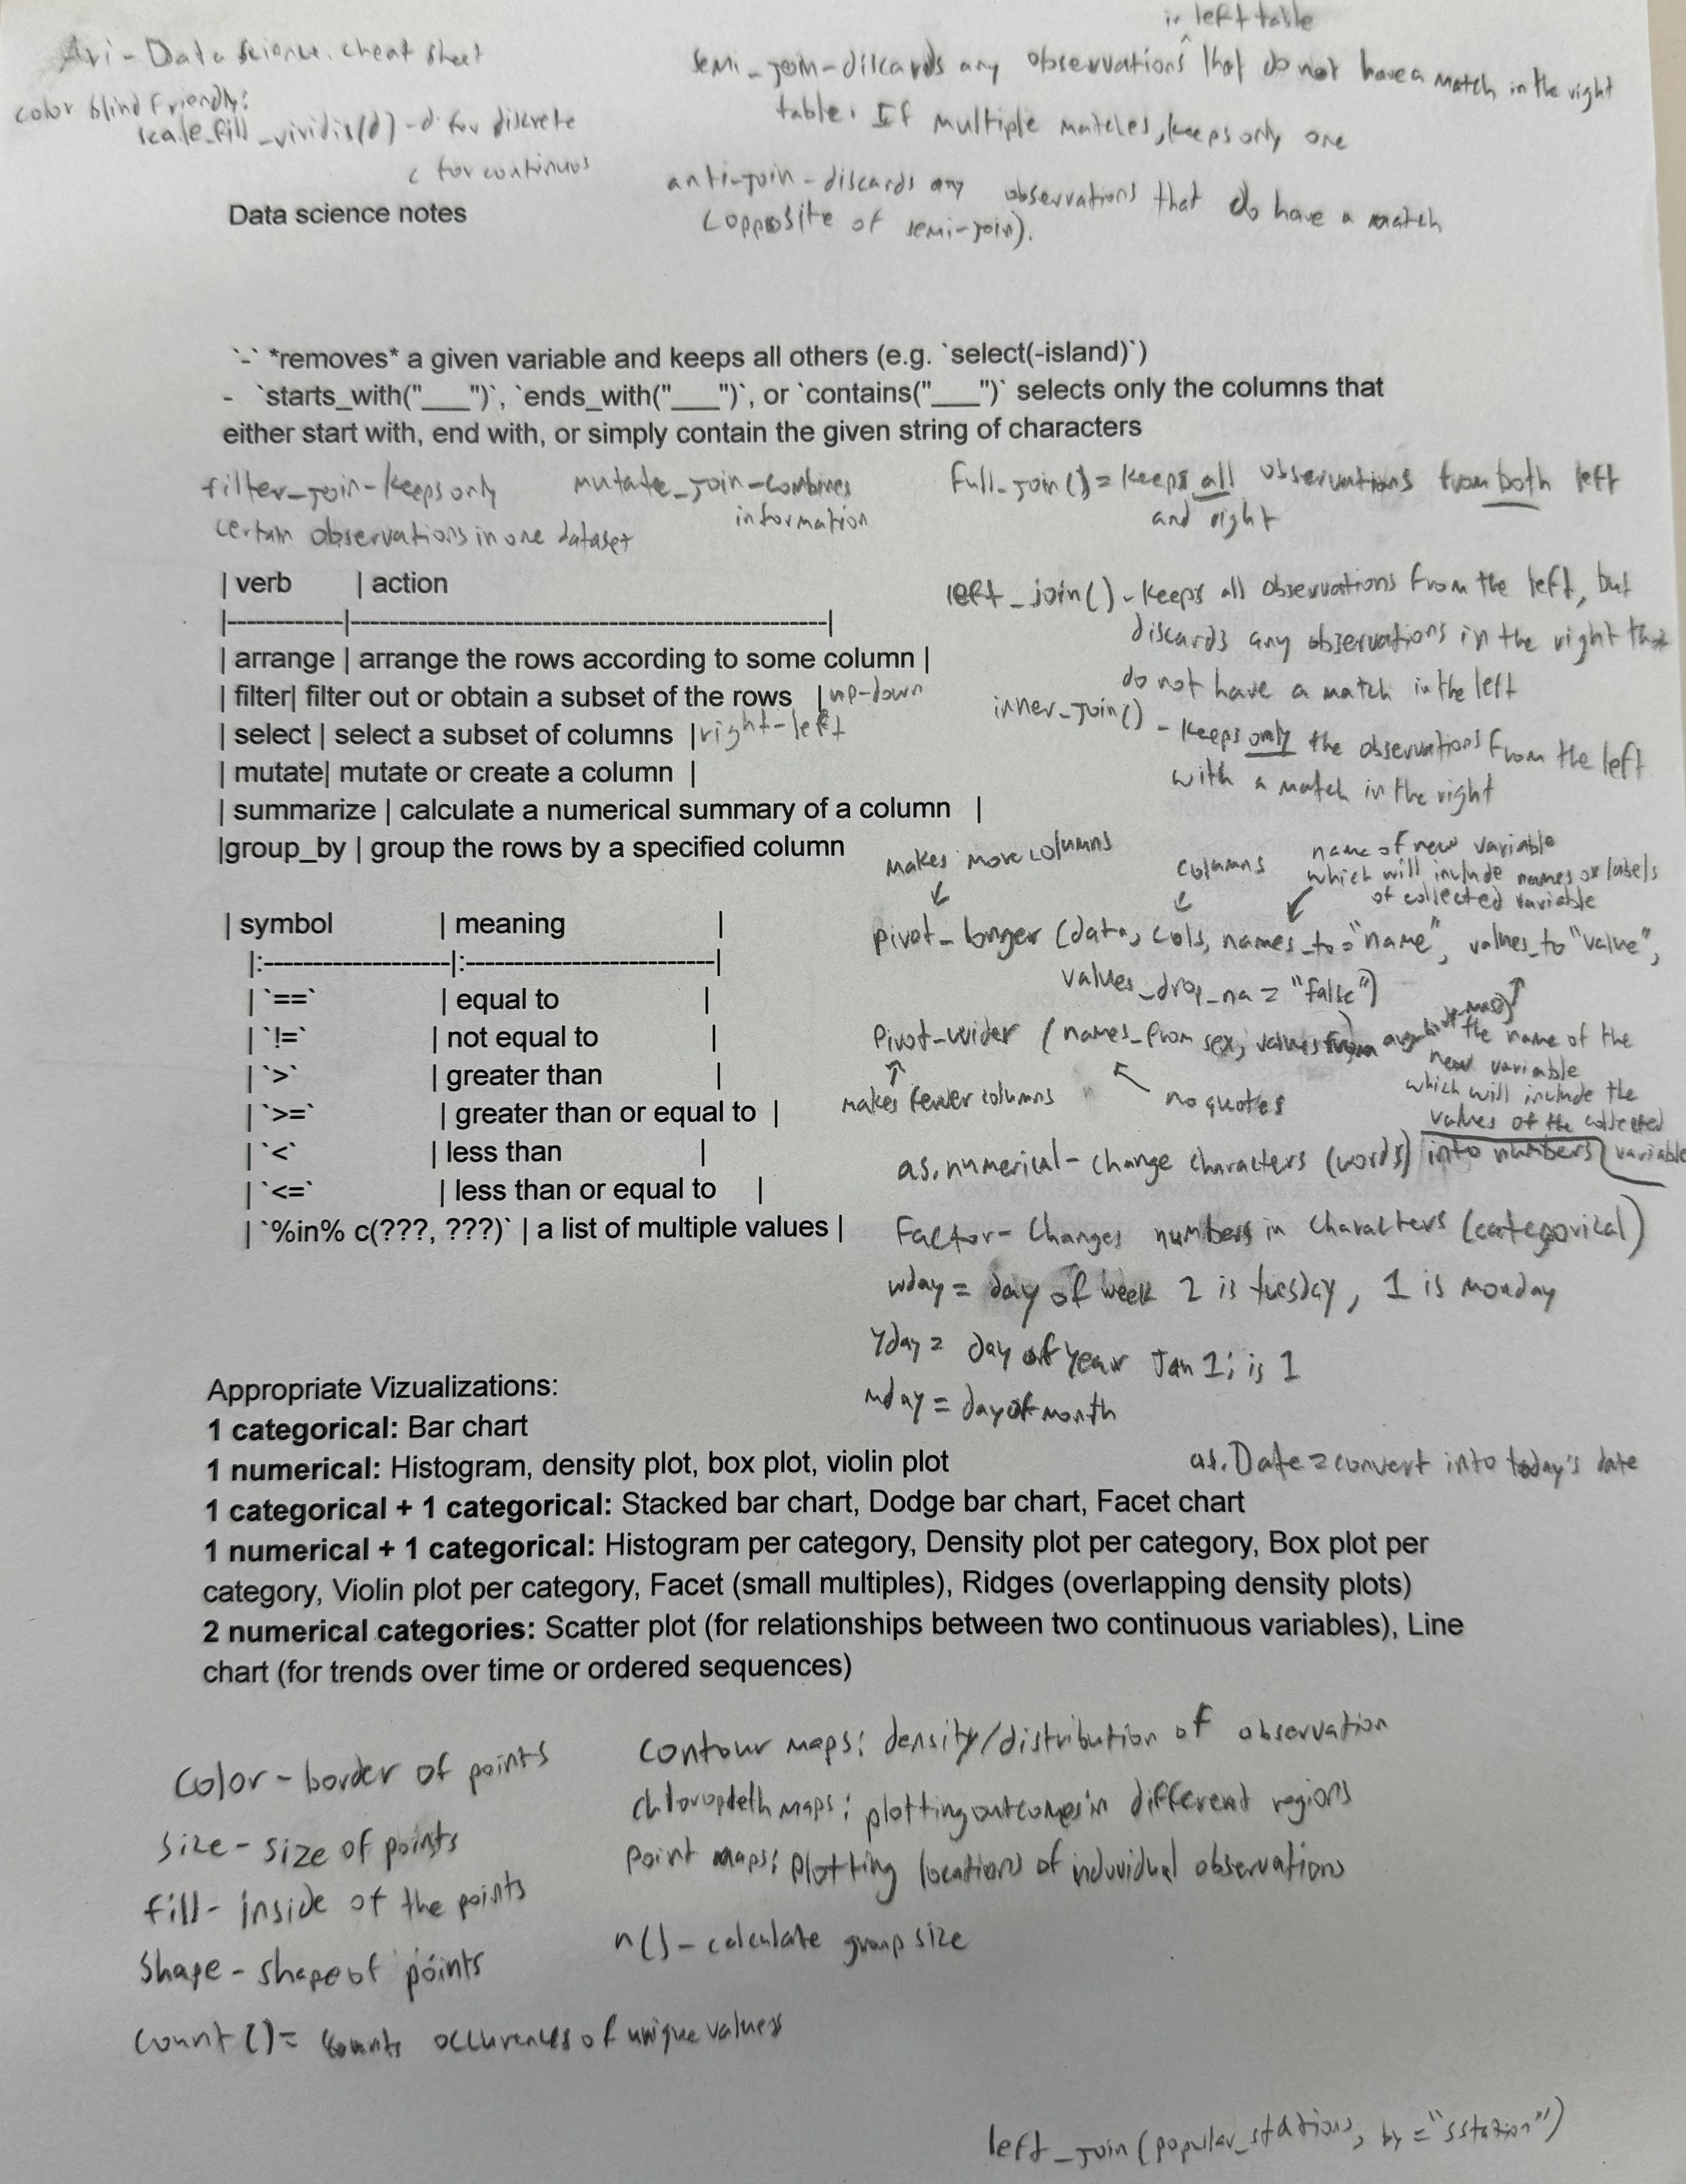 Avi - Data science cheat sheet
color blind friendly:
scale_fill_viridis(d) - d for discrete
c for continuous
in left table
semi_join - discards any observations ^ that do not have a match in the right
table. If multiple matches, keeps only one
anti-join - discards any observations that do have a match
(opposite of semi-join).
Data science notes
`-` *removes* a given variable and keeps all others (e.g. `select(-island)`)
- `starts_with("___")`, `ends_with("___")`, or `contains("___")` selects only the columns that
either start with, end with, or simply contain the given string of characters
filter_join - keeps only
certain observations in one dataset
mutate_join - combines
information
full_join() = keeps all observations from both left
and right
| verb | action
|------------|--------------------------------------------------|
| arrange | arrange the rows according to some column |
| filter| filter out or obtain a subset of the rows | up-down
| select | select a subset of columns | right-left
| mutate| mutate or create a column |
| summarize | calculate a numerical summary of a column |
|group_by | group the rows by a specified column
left_join() - keeps all observations from the left, but
discards any observations in the right that
do not have a match in the left
inner_join()
- keeps only the observations from the left
with a match in the right
makes more columns
columns
name of new variable
which will include names or labels
of collected variable
pivot_longer (data, cols, names_to = "name", values_to "value",
values_drop_na = "false")
Pivot-wider (names_from sex, values from
makes fewer columns
no quotes
the name of the
new variable
which will include the
values of the collected
variable
| symbol | meaning |
|:-------------------|:--------------------------|
| `==` | equal to |
| `!=` | not equal to |
| `>` | greater than |
| `>=` | greater than or equal to |
| `<` | less than |
| `<=` | less than or equal to |
| `%in% c(???, ???)` | a list of multiple values |
as.numerical - change characters (words) into numbers
Factor - Changes numbers in characters (categorical)
wday = day of week 2 is tuesday, 1 is monday
yday = day of year Jan 1; is 1
mday = day of month
as.Date = convert into today's date
Appropriate Vizualizations:
1 categorical: Bar chart
1 numerical: Histogram, density plot, box plot, violin plot
1 categorical + 1 categorical: Stacked bar chart, Dodge bar chart, Facet chart
1 numerical + 1 categorical: Histogram per category, Density plot per category, Box plot per
category, Violin plot per category, Facet (small multiples), Ridges (overlapping density plots)
2 numerical categories: Scatter plot (for relationships between two continuous variables), Line
chart (for trends over time or ordered sequences)
Color - border of points
Size - size of points
fill - inside of the points
Shape - shape of points
count () = counts occurences of unique values
contour maps: density/distribution of observation
chloropleth maps: plotting outcomes in different regions
point maps: plotting locations of individual observations
n() - calculate group size
left_join (popular_stations, by = "sstation")